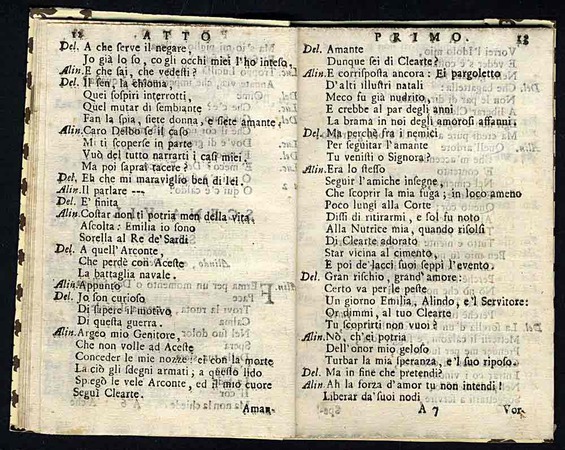 12 ATTO
Del. A che serve il negare,
Jo già lo so, co gli occhi miei l'ho inteso,
Alin. E che sai, che vedesti?
Del. Il sen, la chioma,
Quei sospiri interrotti,
Quel mutar di sembiante
Fan la spia, siete donna, e siete amante,
Alin. Caro Delbo se il caso
Mi ti scoperse in parte
Vuò del tutto narrarti i casi miei,
Ma poi saprai tacere?
Del. Eh che mi maraviglio ben di lei.
Alin. Il parlare ---
Del. E' finita
Alin. Costar non ti potria men della vita,
Ascolta: Emilia io sono
Sorella al Re de' Sardi
Del. A quell' Arconte,
Che perdè con Aceste
La battaglia navale.
Alin. Appunto
Del. Jo son curioso
Di sapere il motivo
Di questa guerra.
Alin. Argeo mio Genitore,
Che non volle ad Aceste
Conceder le mie nozze: ei con la morte
La ciò gli sdegni armati; a questo lido
Spiegò le vele Arconte, ed il mio cuore
Seguì Clearte.
Aman-
PRIMO. 13
Del. Amante
Dunque sei di Clearte?
Alin. E corrisposta ancora: Ei pargoletto
D'alti illustri natali
Meco fu già nudrito,
E crebbe al par degli anni
La brama in noi degl amorosi affanni,
Del. Ma perchè fra i nemici
Per seguitar l'amante
Tu venisti o Signora?
Alin. Era lo stesso
Seguir l'amiche insegne,
Che scoprir la mia fuga; in loco ameno
Poco lungi alla Corte
Dissi di ritirarmi, e sol fu noto
Alla Nutrice mia, quando risolsi
Di Clearte adorato
Star vicina al cimento,
E poi de' lacci suoi seppi l'evento.
Del. Gran rischio, grand' amore:
Certo va per le peste
Un giorno Emilia, Alindo, e 'l Servitore:
Or dimmi, al tuo Clearte
Tu scoprirti non vuoi?
Alin. Nò, ch'ei potria
Dell'onor mio geloso
Turbar la mia speranza, e 'l suo riposo.
Del. Ma in fine che pretendi?
Alin. Ah la forza d'amor tu non intendi!
Liberar da' suoi nodi
A 7 Vor-